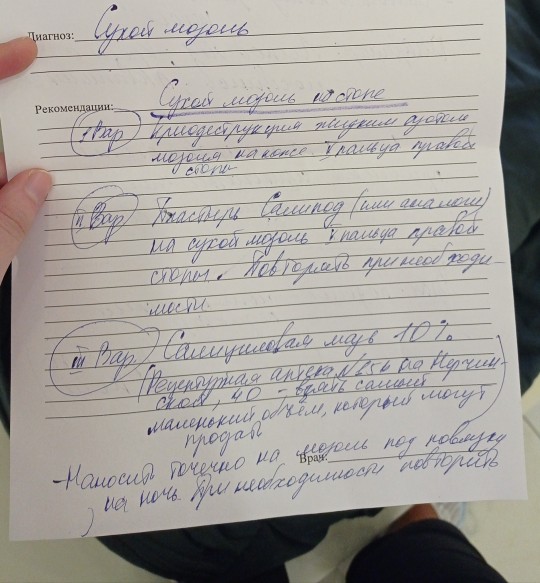 Диагноз: Сухой мозоль
Рекомендации: Сухой мозоль на стопе
I Вар Криодеструкция жидким азотом
мозоля на коже V пальца правой
стопы
II Вар Пластырь Салипод (или аналоги)
на сухой мозоль V пальца правой
стопы. Повторять при необходи-
мости.
III Вар. Салициловая мазь 10%
(Рецептурная аптека №256 на Нерчин-
ской, 40 - взять самый
маленький объём, который могут
продать)
Врач:
- Наносить точечно на мозоль под повязку
на ночь. При необходимости повторить